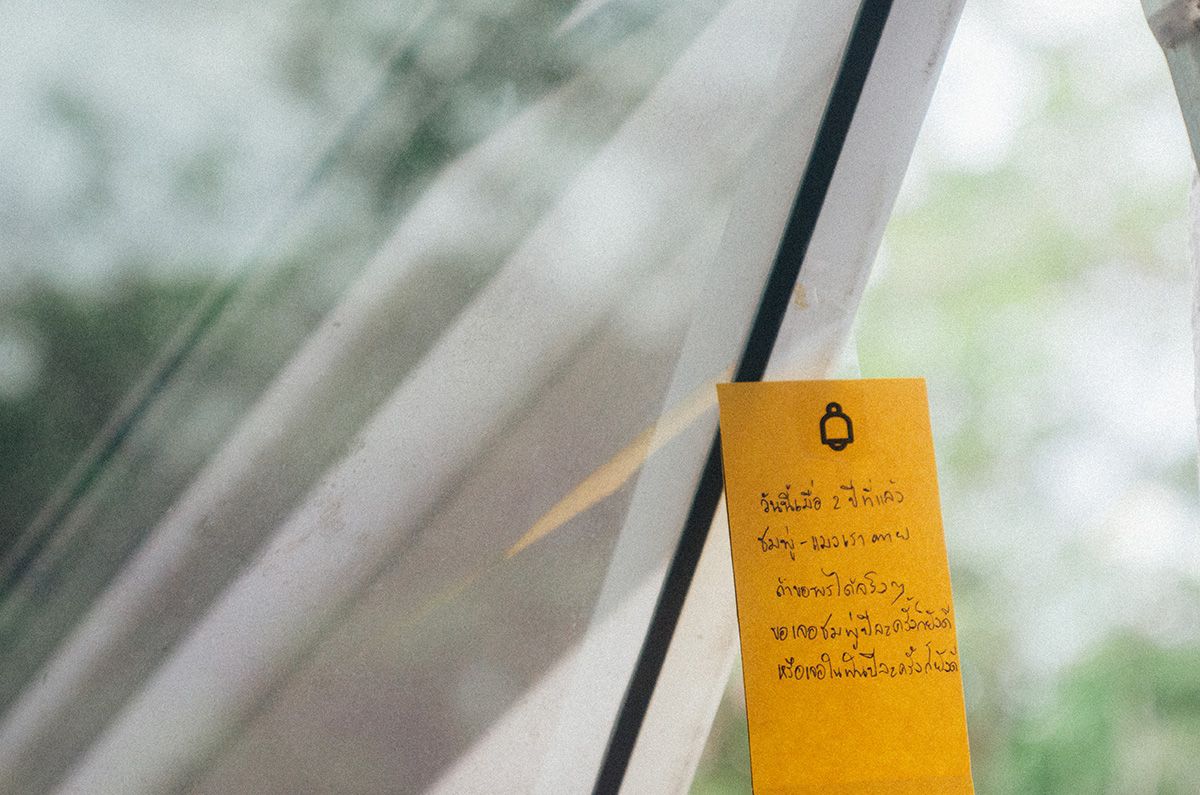 วันนี้เมื่อ 2 ปีที่แล้ว
ชมพู่ - แมวเราตาย
ถ้าขอพรได้จริงๆ
ขอเจอชมพู่ปีละครั้งก็ยังดี
หรือเจอในฝันปีละครั้งก็ยังดี